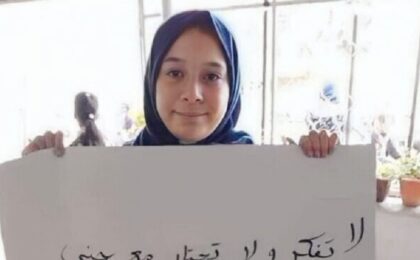 لا
تفكر و لا تحتار مع جنى